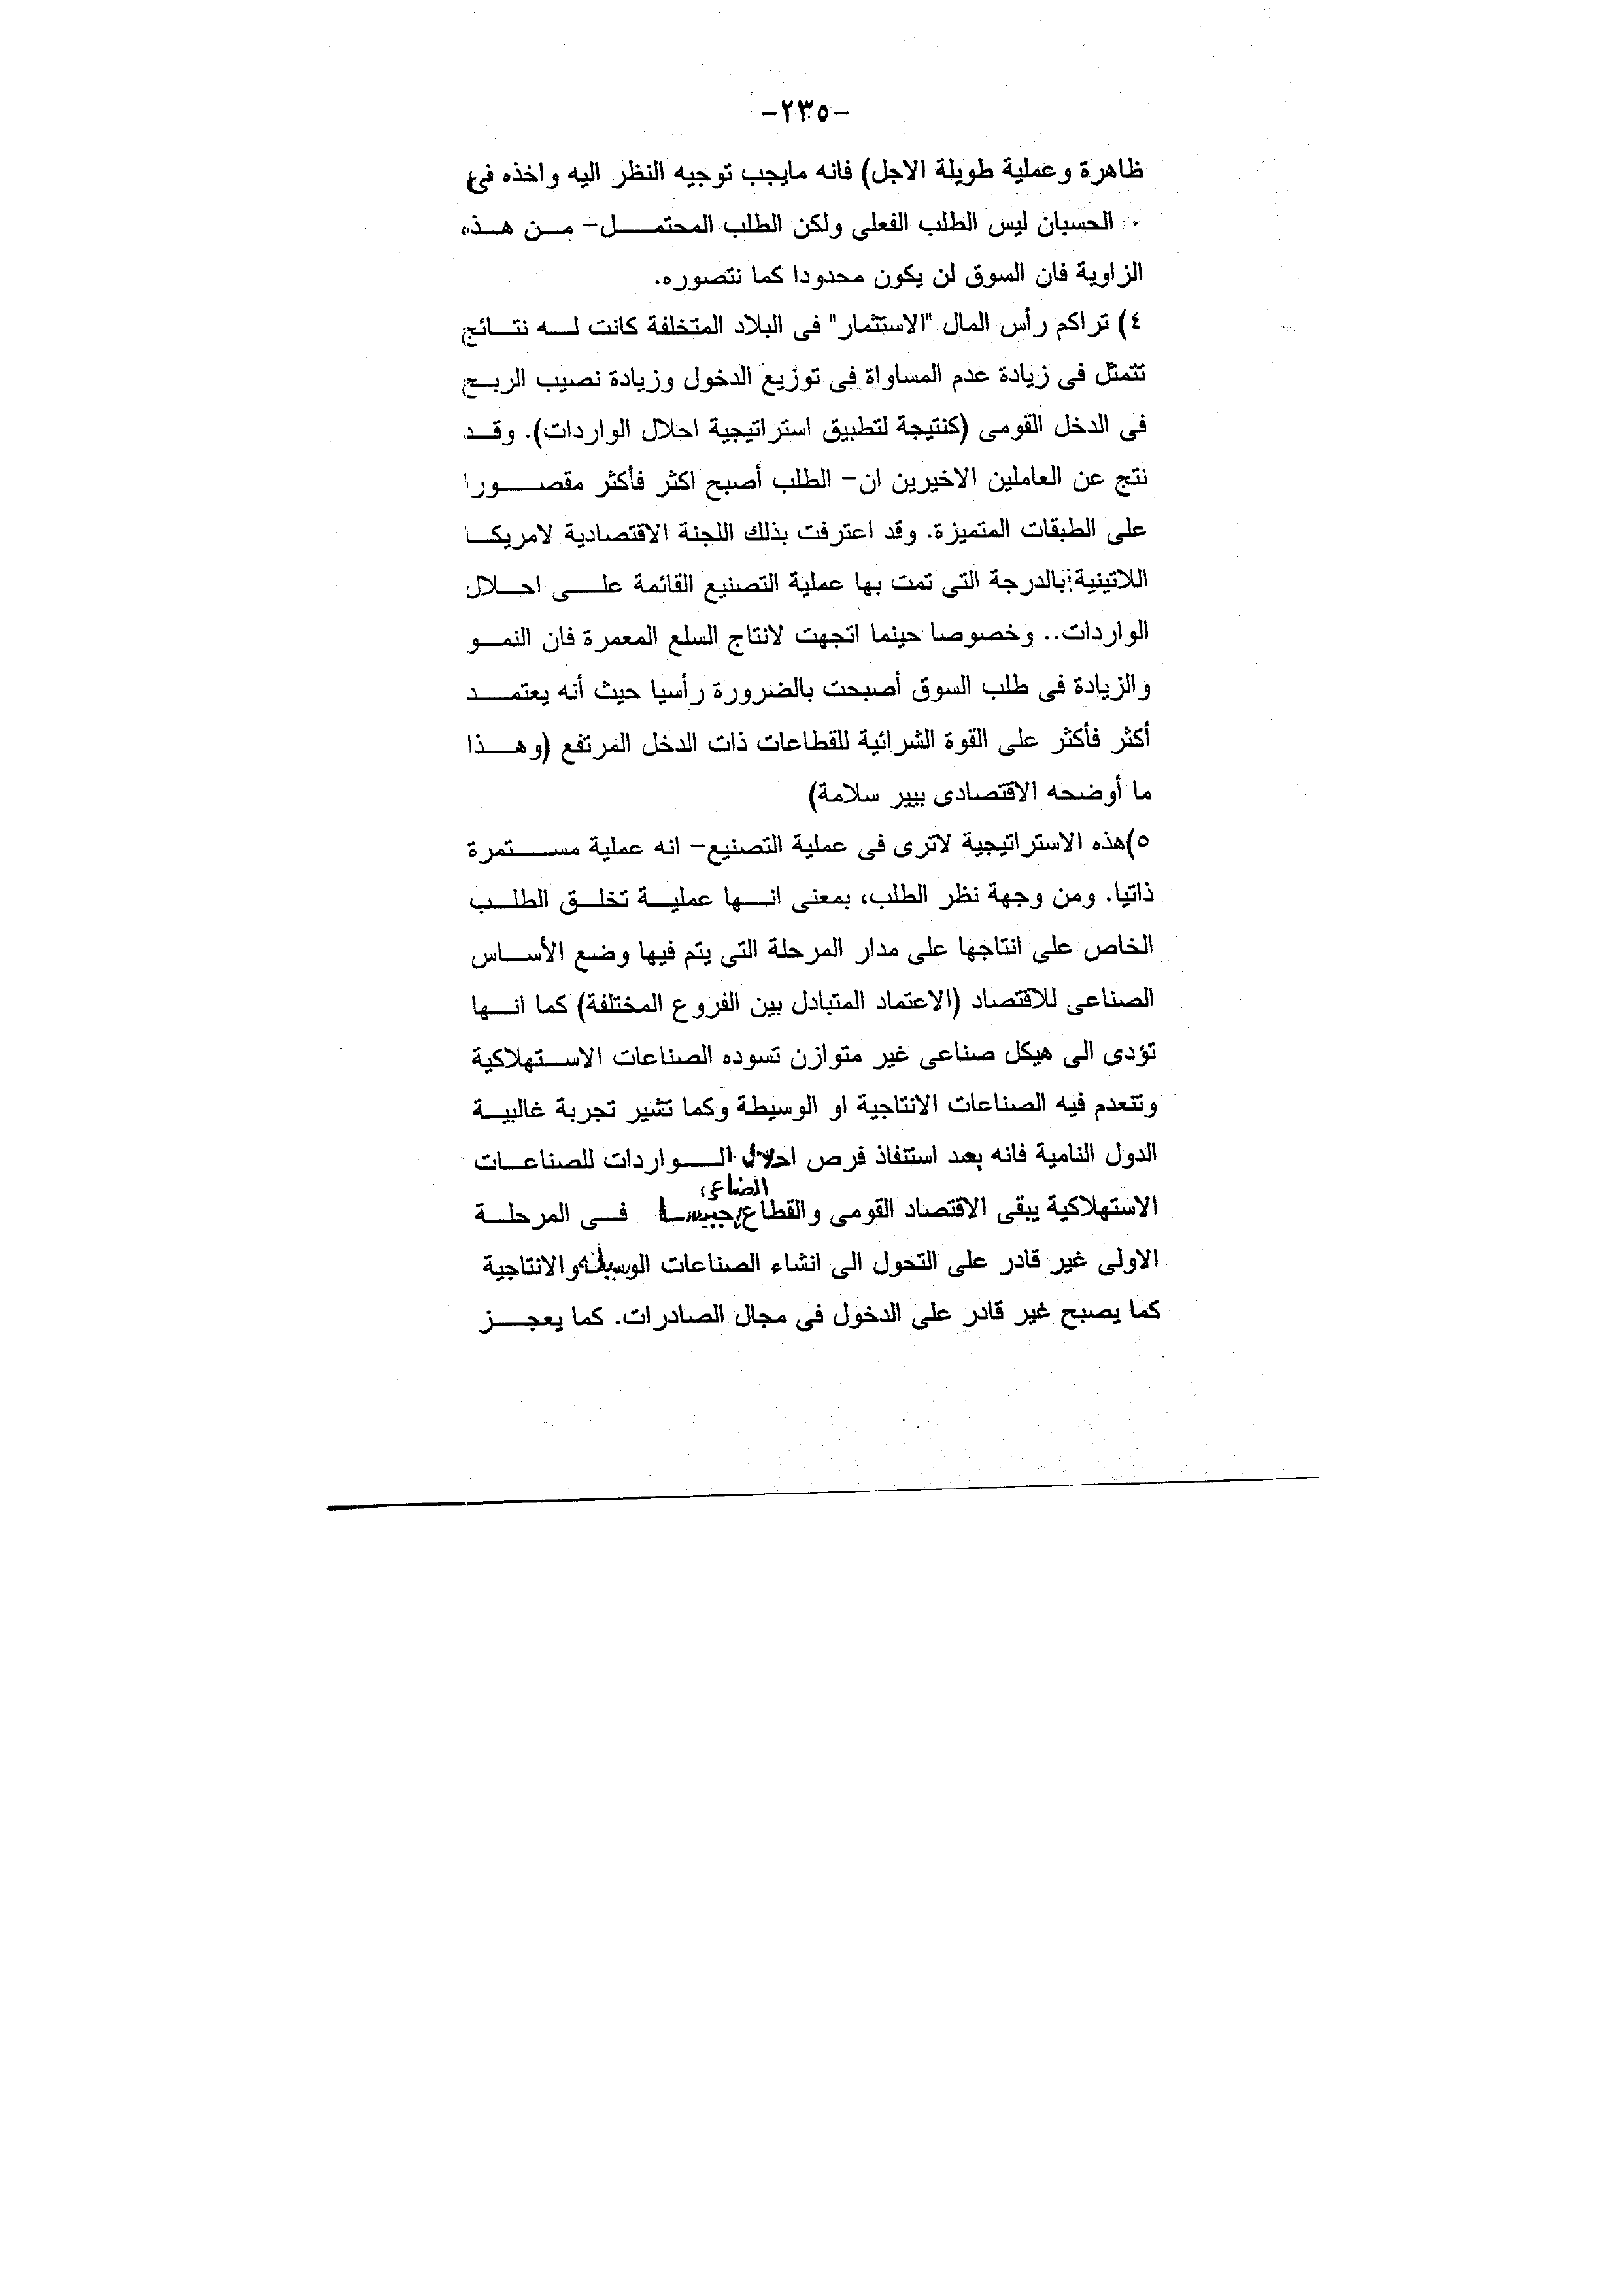 -٢٣٥-
ظاهرة وعملية طويلة الاجل) فانه مايجب توجيه النظر اليه واخذه فى
الحسبان ليس الطلب الفعلى ولكن الطلب المحتمل- من هذه
الزاوية فان السوق لن يكون محدودا كما نتصوره.
٤) تراكم رأس المال "الاستثمار" فى البلاد المتخلفة كانت له نتائج
تتمثل فى زيادة عدم المساواة فى توزيع الدخول وزيادة نصيب الربح
فى الدخل القومى (كنتيجة لتطبيق استراتيجية احلال الواردات). وقد
نتج عن العاملين الاخيرين ان- الطلب أصبح اكثر فأكثر مقصورا
على الطبقات المتميزة. وقد اعترفت بذلك اللجنة الاقتصادية لامريكا
اللاتينية: بالدرجة التى تمت بها عملية التصنيع القائمة على احلال
الواردات.. وخصوصا حينما اتجهت لانتاج السلع المعمرة فان النمو
والزيادة فى طلب السوق أصبحت بالضرورة رأسيا حيث أنه يعتمد
أكثر فأكثر على القوة الشرائية للقطاعات ذات الدخل المرتفع (وهذا
ما أوضحه الاقتصادى بيير سلامة)
٥)هذه الاستراتيجية لاترى فى عملية التصنيع- انه عملية مستمرة
ذاتيا. ومن وجهة نظر الطلب، بمعنى انها عملية تخلق الطلب
الخاص على انتاجها على مدار المرحلة التى يتم فيها وضع الأساس
الصناعى للاقتصاد (الاعتماد المتبادل بين الفروع المختلفة) كما انها
تؤدى الى هيكل صناعى غير متوازن تسوده الصناعات الاستهلاكية
وتتعدم فيه الصناعات الانتاجية او الوسيطة وكما تشير تجربة غالبية
الدول النامية فانه بعد استنفاذ فرص احلال الواردات للصناعات
الاستهلاكية يبقى الاقتصاد القومى والقطاع الصناعى حبيسا فى المرحلة
الاولى غير قادر على التحول الى انشاء الصناعات الوسيطة والانتاجية
كما يصبح غير قادر على الدخول فى مجال الصادرات. كما يعجز